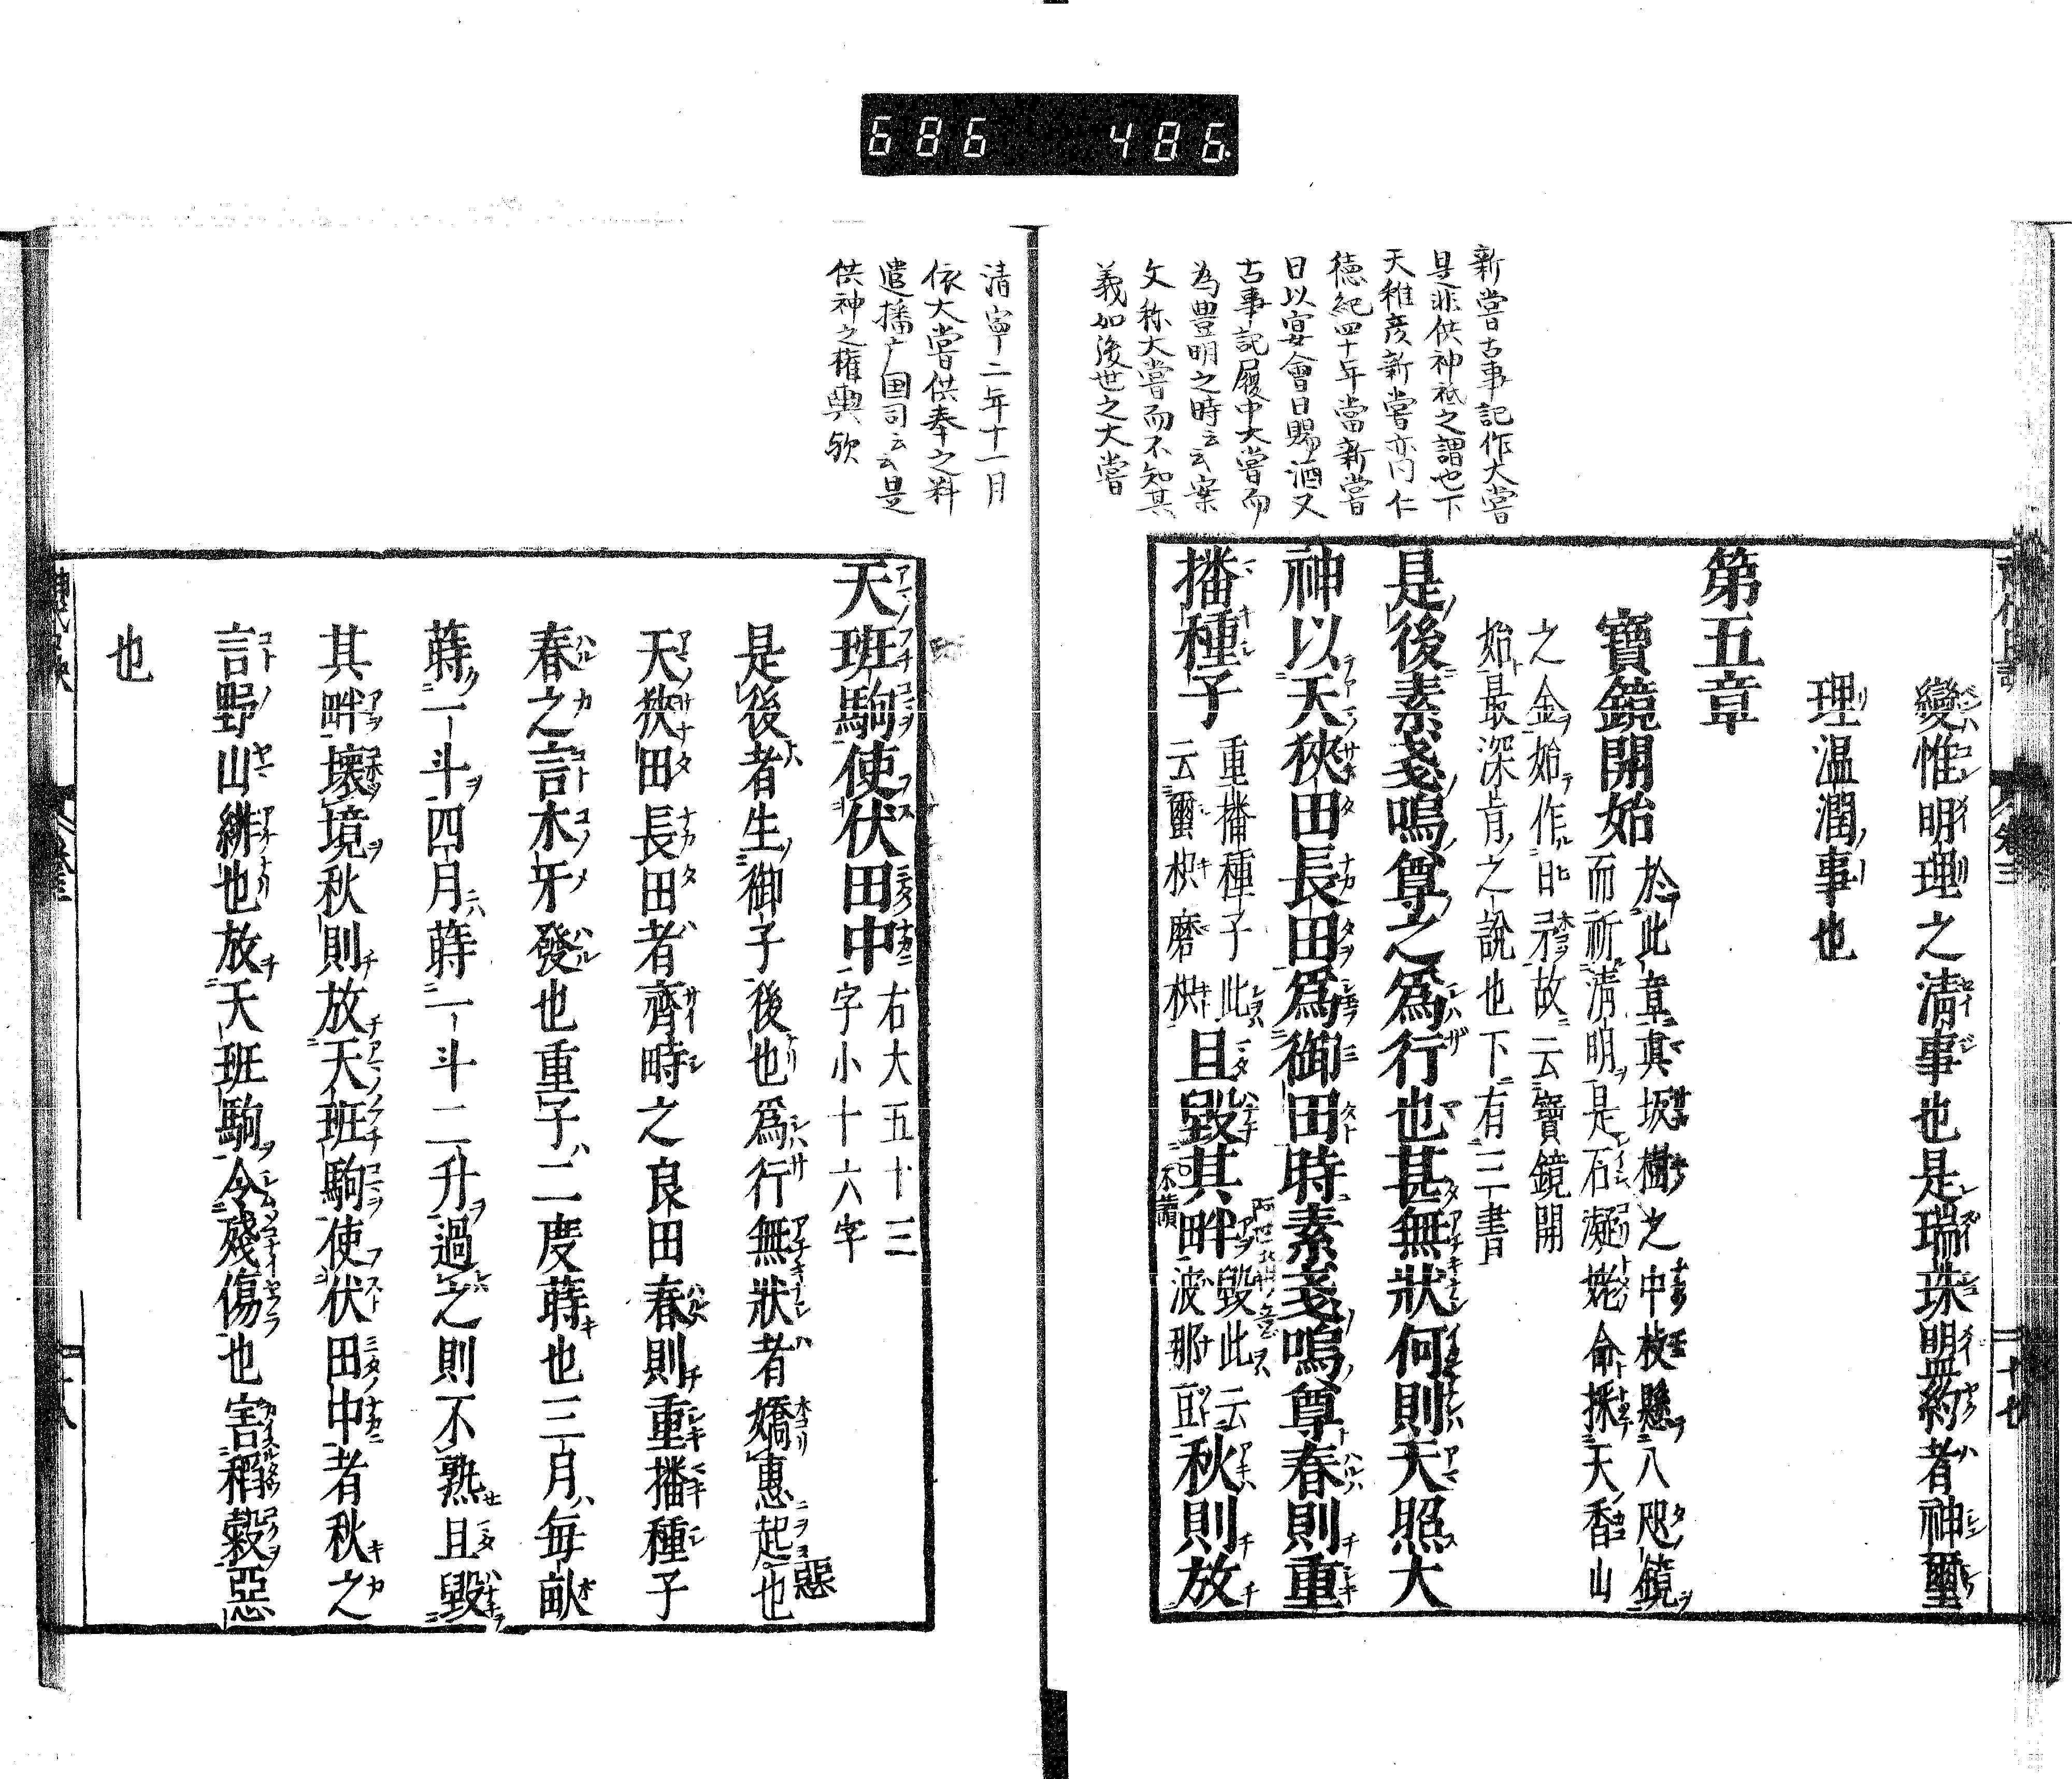 686 486
新嘗古事記作大嘗
是非供神祇之謂也下
天稚彦新嘗亦同仁
德紀四十年當新嘗
日以宴會日賜酒又
古事記履中大嘗而
為豊明之時云云案
文称大嘗而不知其
義如後世之大嘗
變惟明理之清事也是瑞珠盟約者神璽
理温潤事也
第五章
寶鏡開始
於此章真坂樹之中枝懸八咫鏡
而祈清明是石凝姥命採天香山
之金始作日矛故云寶鏡開
始最深肯之說也下有三書
是後素戔嗚尊之爲行也甚無狀何則天照大
神以天狹田長田爲御田時素戔嗚尊春則重
播種子
重播種子此
云璽枳磨枳
且毀其畔
毀此云
波那豆
秋則放
不讀
清寧二年十一月
依大嘗供奉之料
遣播广国司云云是
供神之權輿欤
天班駒使伏田中
右大五十三
字小十六字
是後者生御子後也爲行無狀者嬌惠起也
惡
天狹田長田者齊時之良田春則重播種子
春之言木牙發也重子二度蒔也三月每畝
蒔一斗四月蒔一斗二升過之則不熟且毀
其畔壞境秋則放天班駒使伏田中者秋之
言野山緋也放天班駒令殘傷也害稻穀惡
也